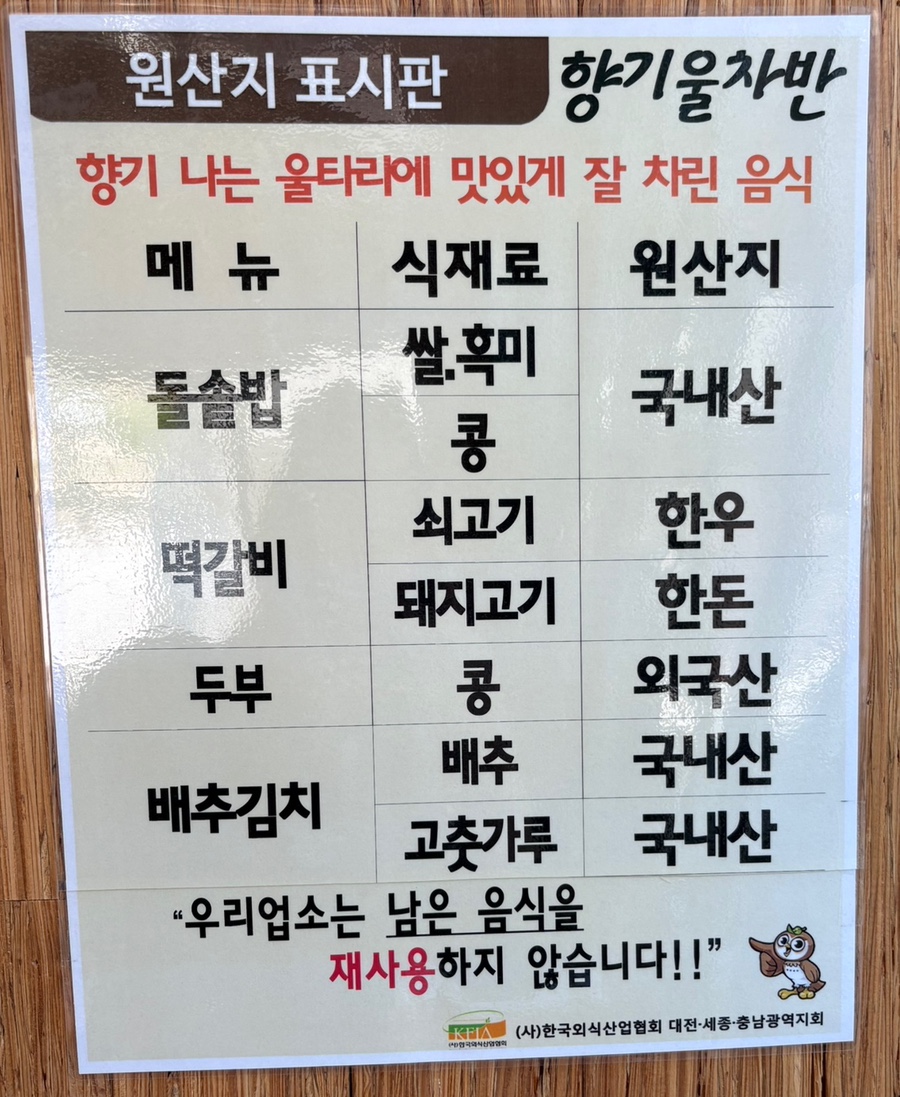 원산지 표시판
향기울차반
향기 나는 울타리에 맛있게 잘 차린 음식
메 뉴 식재료 원산지
돌솥밥 쌀.흑미 국내산
콩
떡갈비 쇠고기 한우
돼지고기 한돈
두부 콩 외국산
배추김치 배추 국내산
고춧가루 국내산
“우리업소는 남은 음식을
재사용하지 않습니다!!”
KFIA
(사)한국외식산업협회
(사)한국외식산업협회 대전·세종·충남광역지회